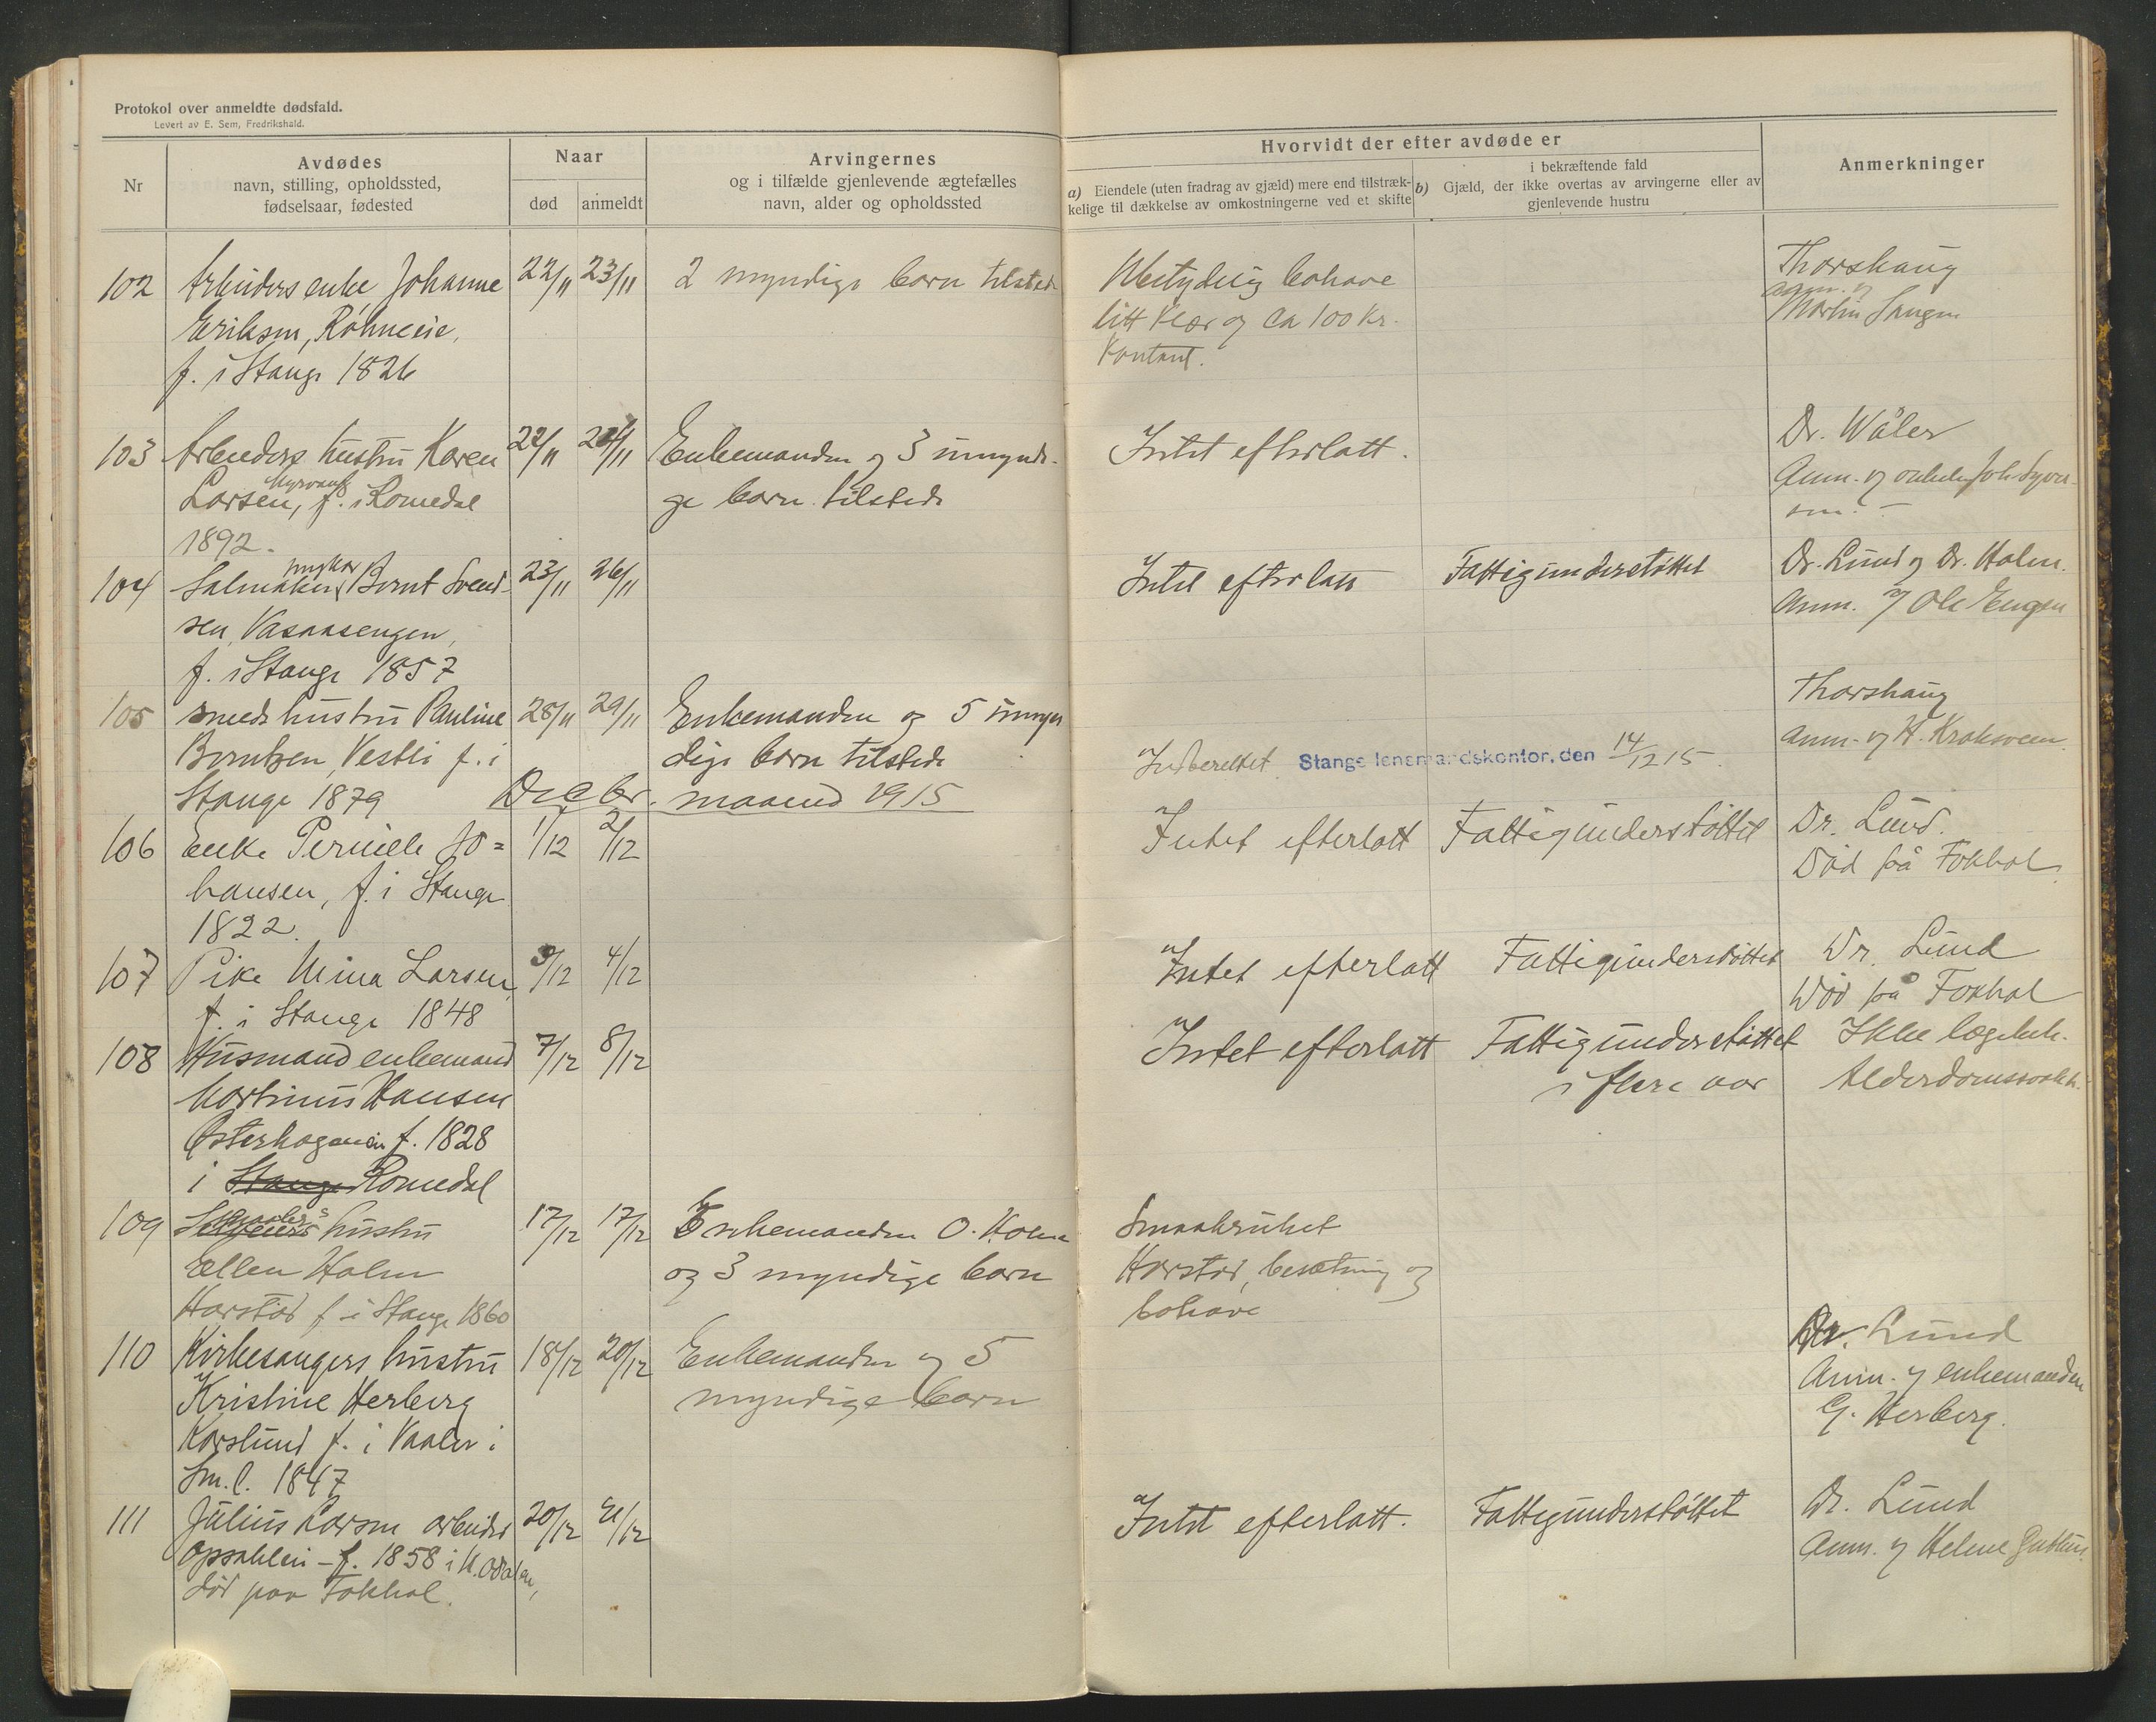 Protokol over anmeldte dødsfald.
Levert av E. Sem, Fredrikshald.
Nr
Avdødes
navn, stilling, opholdssted,
fødselsaar, fødested
Naar
død
anmeldt
Arvingernes
og i tilfælde gjenlevende ægtefælles
navn, alder og opholdssted
Hvorvidt der efter avdøde er
a) Eiendele (uten fradrag av gjæld) mere end tilstræk-
kelige til dækkelse av omkostningerne ved et skifte
i bekræftende fald
b) Gjæld, der ikke overtas av arvingerne eller av
gjenlevende hustru
Anmerkninger
102 Arbeiders enke Johanne 22/11 23/11 2 myndige børn tilstede
Eriksen,
f. i Stange 1826
Ubetydelig bohave
litt klær og ca 100 kr.
kontant.
Thorshaug
anm. af
Martin
103 Arbeiders hustru Karen 22/11 24/11 Enkemanden og 3 umyndi-
Larsen, f. i Romedal
ge børn tilstede
1892.
Intet efterlatt.
Dr. Wåler
Anm. af
104 Salmaker Bernt Svend- 23/11 26/11
sen, Vasaasengen,
f. i Stange 1857
Intet efterlatt
Fattigunderstøttet
Dr. Lund og Dr. Holm.
Anm. af Ole Engen
105 Smeds hustru Pauline 28/11 29/11 Enkemanden og 5 umyn
Berntsen, Vestli f. i
dige børn tilstede
Stange 1879
Indberettet Stange lensmandskontor, den 14/12 15.
Thorshaug
anm. af H. Kroksveen
Decbr. maaned 1915
106 Enke Pernille Jo=
hansen, f. i Stange
1822.
1/12 2/12
Intet efterlatt Fattigunderstøttet
Dr. Lund.
Død på Fokhol
107 Pike Mina Larsen,
f. i Stange 1848
3/12 4/12
Intet efterlatt Fattigunderstøttet
Dr. Lund
Død på Fokhol
108 Husmand enkemand
Martinus Hansen
f. 1828
i Stange Romedal
7/12 8/12
Intet efterlatt Fattigunderstøttet
i flere aar
Ikke lægebeh.
Alderdomssvakh.
109 hustru
Ellen Holm
Harstad f i Stange 1860
17/12 17/12 Enkemanden O. Holm
og 3 myndige børn
Smaabruket
Harstad, besætning og
bohave
110 Kirkesangers hustru
Kristine Herberg
Korslund f. i Vaaler i
Sm.l. 1847
18/12 20/12 Enkemanden og 5
myndige børn
Dr. Lund
Anm. af enkemanden
G. Herberg.
111 Julius Larsen arbeider
Opsahlei - f. 1858 i N. Odalen,
død paa Fokhol.
20/12 21/12
Intet efterlatt. Fattigunderstøttet
Dr. Lund
Anm. af Helene